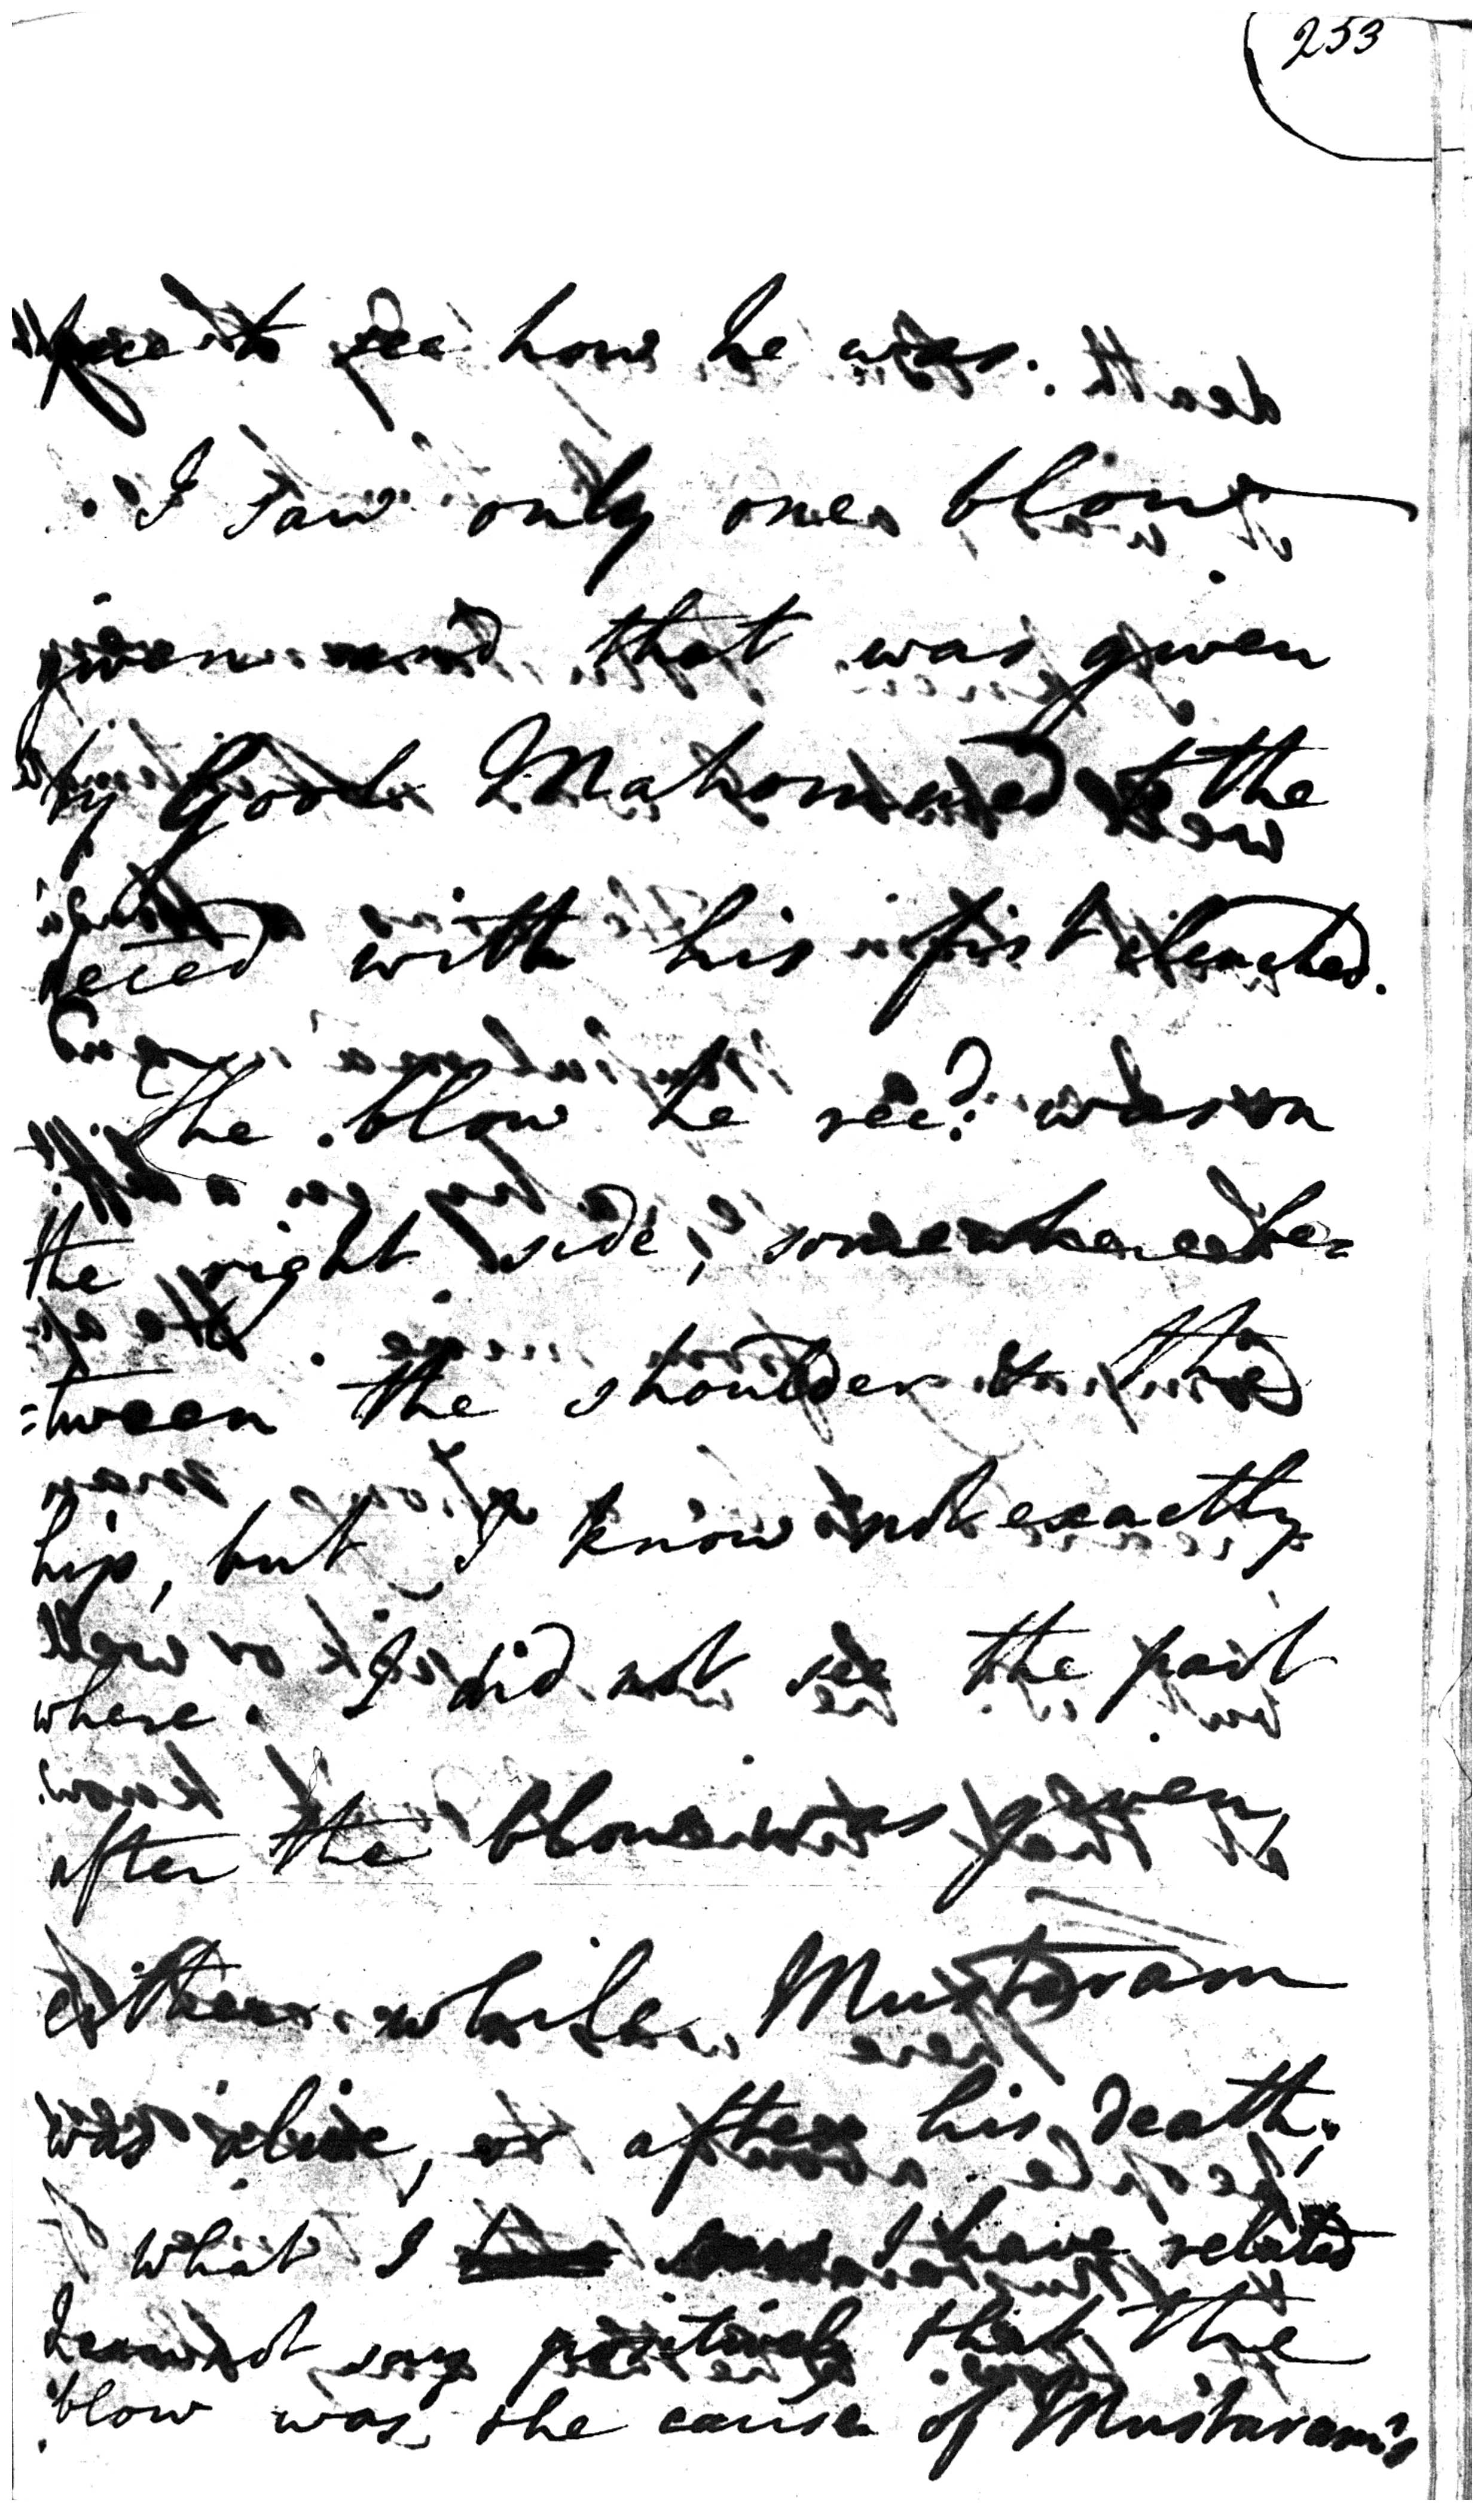 253
to see how he was.
I saw only one blow
given and that was given
by Gool Mahommed to the
decēd with his fist clenched.
The blow he recd. was on
the right side, somewhere be=
=tween the shoulder & the
hip, but I know not exactly
where. I did not see the part
after the blow was given,
either while Mustaram
was alive, or after his death;
what I saw I have related
I cannot say positively that the
blow was the cause of Mustaram's